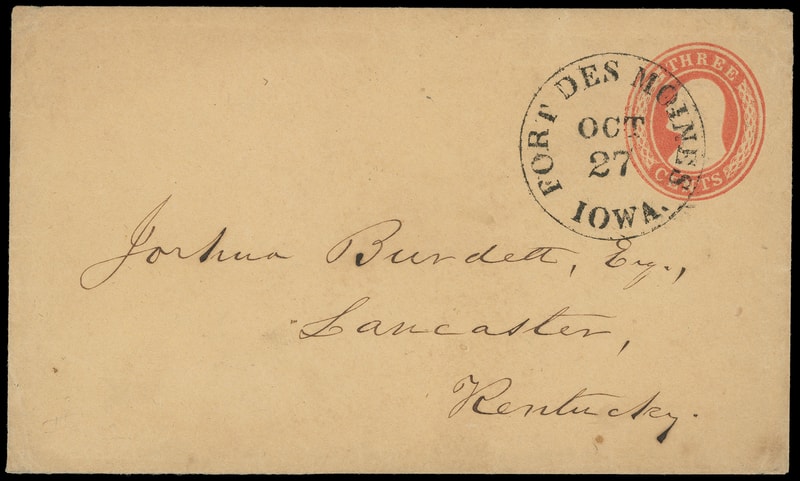 THREE
CENTS
FORT DES MOINES
OCT
27
IOWA.
Joshua Burdett, Esq.,
Lancaster,
Kentucky.